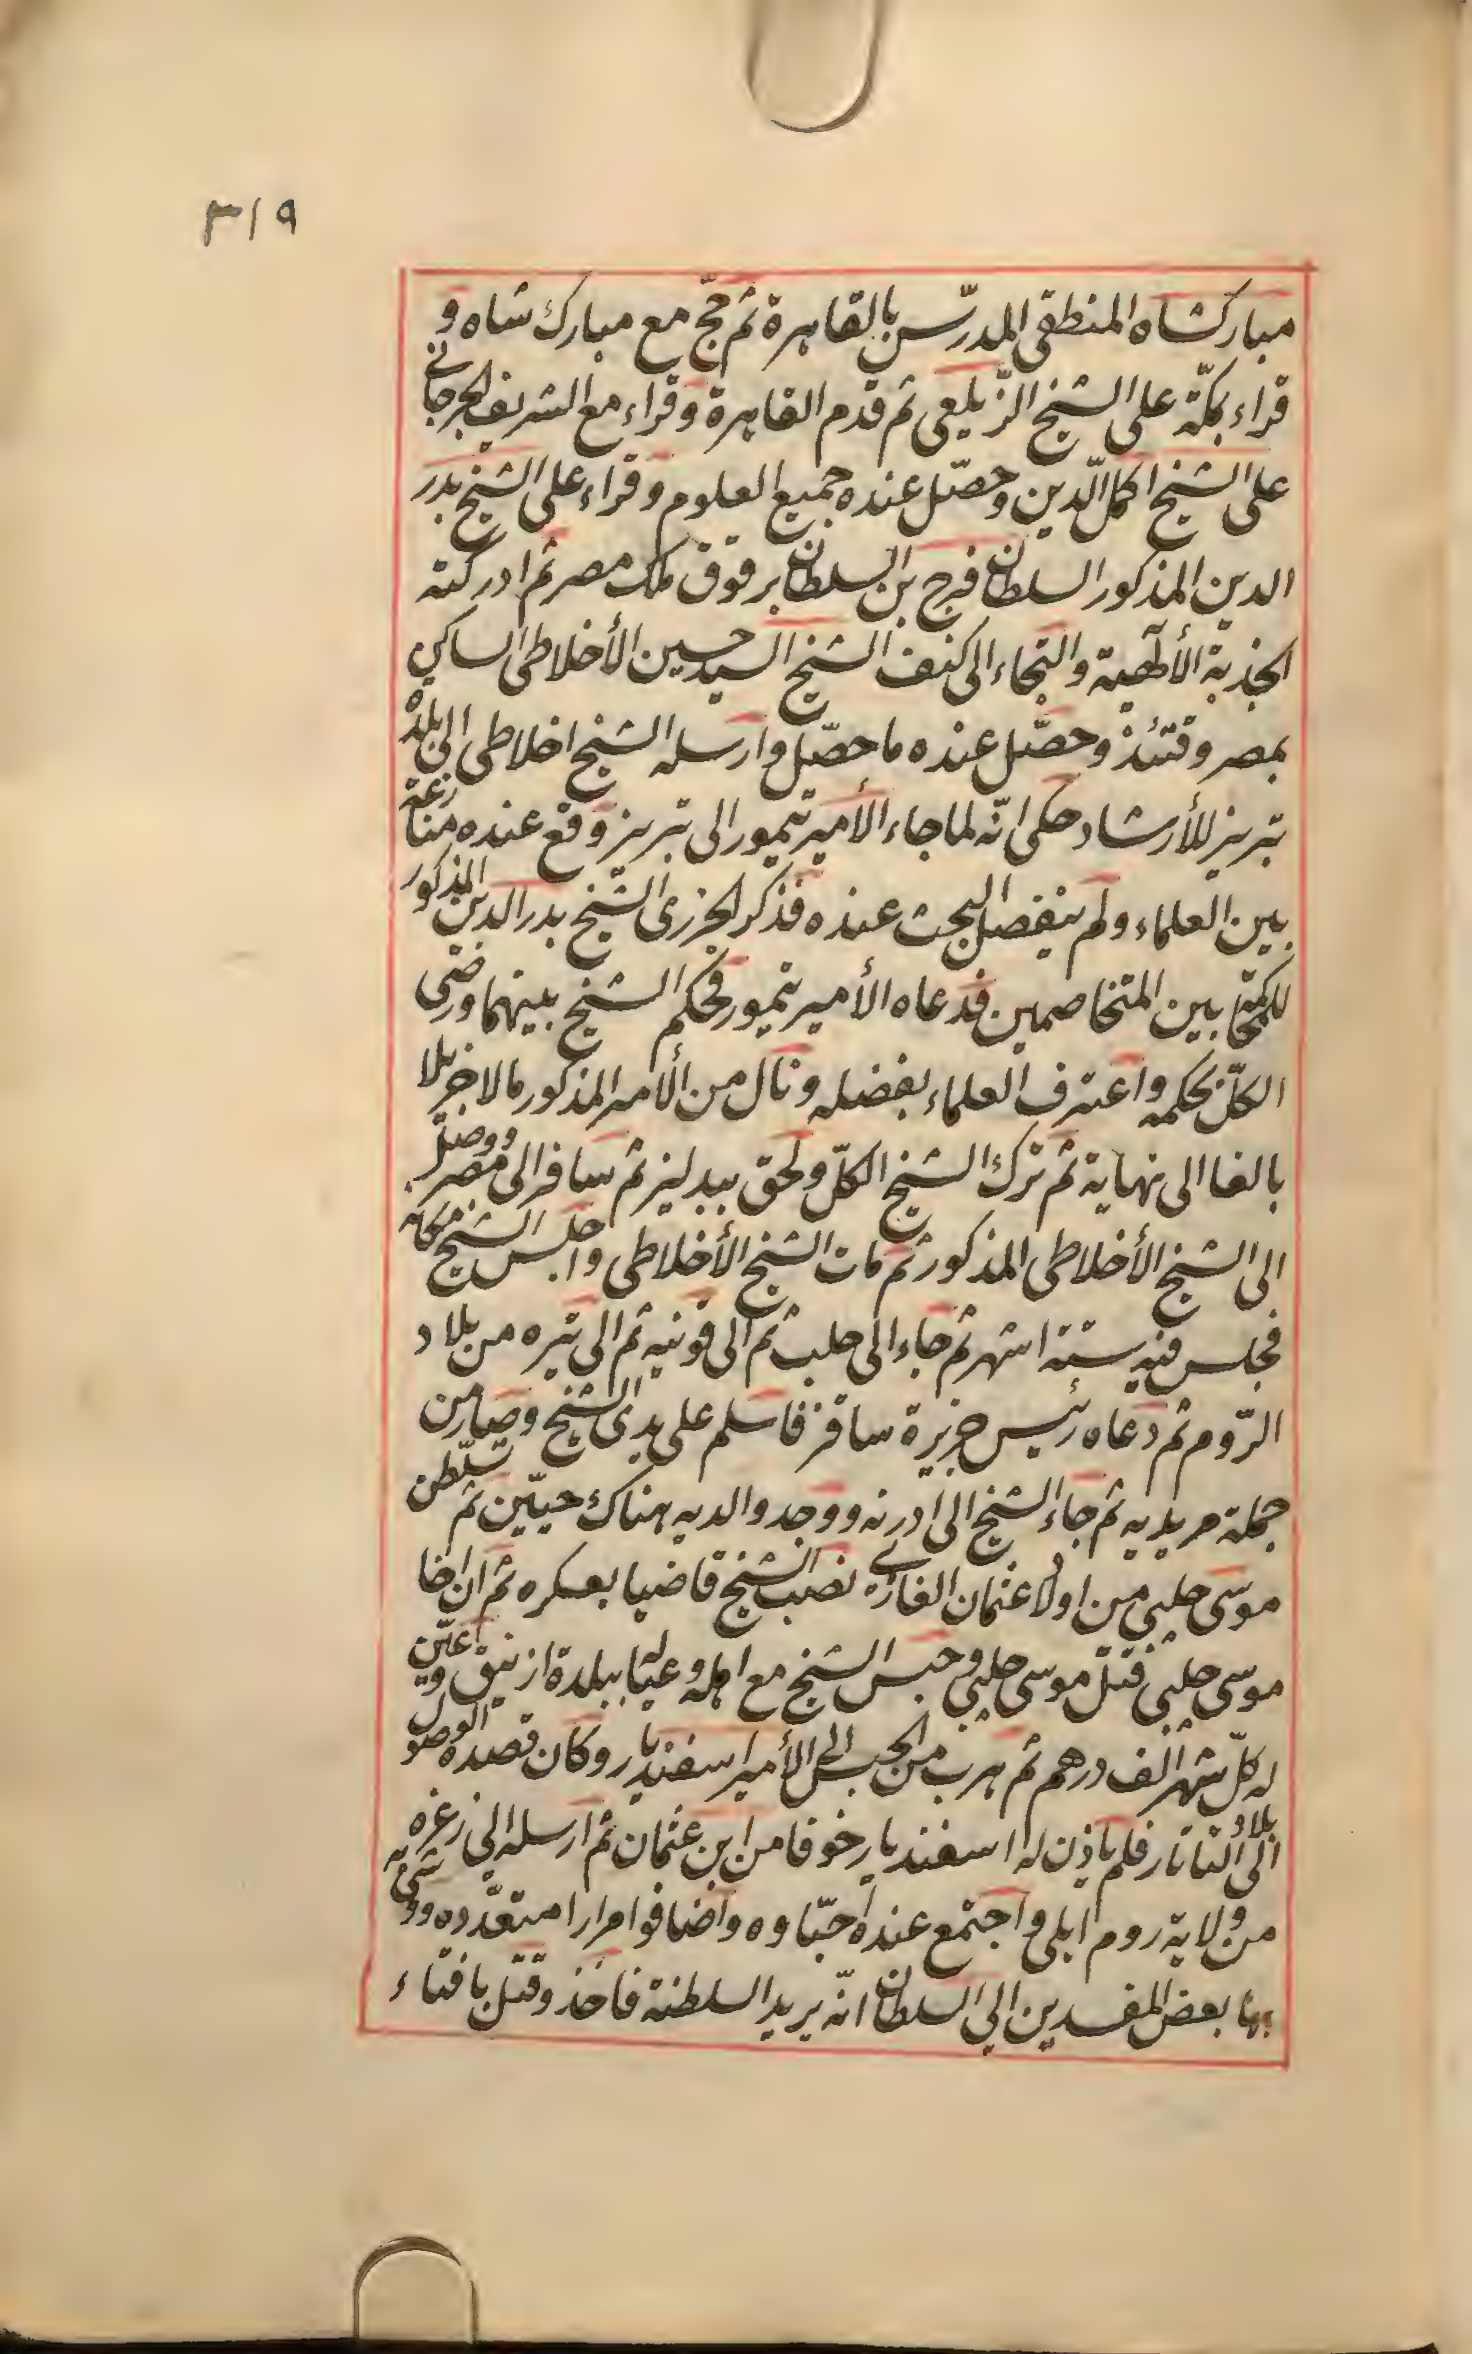 ٣١٩
مباركشاه المنطقى المدرّس بالقاهرة ثم حجّ مع مبارك شاه و
قراء بمكّة على الشيخ الزّيلعى ثم قدم القاهرة وقراء مع الشريف الجرجانى
على الشيخ اكمل الدّين وحصّل عنده جميع العلوم وقراء على الشيخ بدر
الدين المذكور السلطان فرج بن السلطان برقوق ملك مصر ثم ادركته
الجذبة الألٓهية والتجاء الى كنف الشيخ السيد حسين الأخلاطى الساكن
بمصر وقتئذ وحصّل عنده ما حصّل وارسله الشيخ اخلاطى الى بلدة
تبريز للأرشاد حكى انّه لما جاء الأمير تيمور الى تبريز وقع عنده منازعة
بين العلماء ولم ينفصل البحث عنده فذكر الجزرى الشيخ بدر الدين المذكور
للمحاكمة بين المتخاصمين فدعاه الأمير تيمور فحكم الشيخ بينهما ورضى
الكلّ بحكمه واعترف العلماء بفضله ونال من الأمير المذكور مالا جزيلا
بالغا الى نهاية ثم ترك الشيخ الكلّ ولحق ببدليز ثم سافر الى مصر ووصل
الى الشيخ الأخلاطى المذكور ثم مات الشيخ الأخلاطى واجلس الشيخ مكانه
فجلس فيه ستة اشهر ثم جاء الى حلب ثم الى قونيه ثم الى تيره من بلاد
الرّوم ثم دعاه رئيس جزيرة ساقز فاسلم على يدى الشيخ وصار من
جملة مريديه ثم جاء الشيخ الى ادرنه ووجد والديه هناك حيّين ثم تسلّطن
موسى جلبى من اولاد عثمان الغازى نصب الشيخ قاضيا بعسكره ثم ان اخا
موسى جلبى قتل موسى جلبى وحبس الشيخ مع اهله وعياله ببلدة ازنيق وعيّن
له كلّ شهر الف درهم ثم هرب من الحبس الى الأمير اسفنديار وكان قصده الوصول
الى بلاد التاتار فلم ياذن له اسفنديار خوفا من ابن عثمان ثم ارسله الى زغره
من ولاية روم ايلى واجتمع عنده احبّاوه واضافوا مرارا متعدّده ووشى به
بها بعض المفسدين الى السلطان انّه يريد السلطنة فاخذ وقتل بافتاء